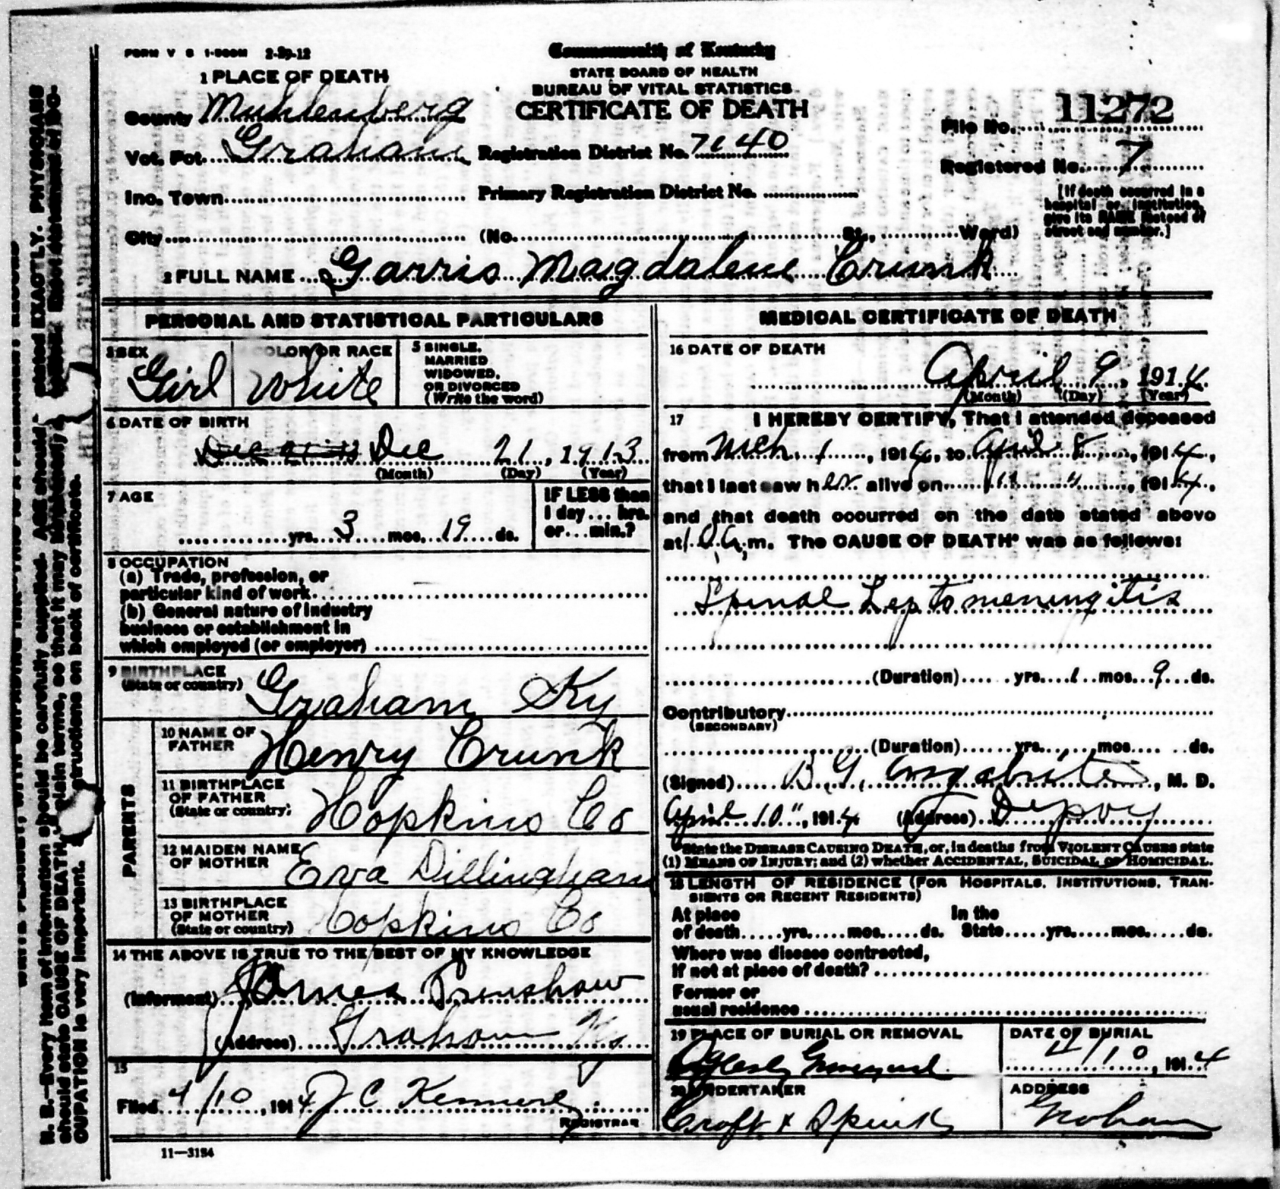 FORM V S 1-500M 2-29-12
Commonwealth of Kentucky
STATE BOARD OF HEALTH
BUREAU OF VITAL STATISTICS
CERTIFICATE OF DEATH
1 PLACE OF DEATH
County Muhlenberg
Vot. Pct. Graham Registration District No. 7640
File No. 11272
Registered No. 7
Inc. Town Primary Registration District No.
[If death occurred in a
hospital or institution,
give its NAME instead of
street and number.]
City (No. St., Ward)
2 FULL NAME Garris Magdalene Crunk
PERSONAL AND STATISTICAL PARTICULARS
3 SEX Girl
COLOR OR RACE White
5 SINGLE,
MARRIED
WIDOWED,
OR DIVORCED
(Write the word)
6 DATE OF BIRTH
Dec 21, 1913
(Month) (Day) (Year)
7 AGE
yrs. 3 mos. 19 ds.
IF LESS than
1 day ... hrs.
or ... min.?
8 OCCUPATION
(a) Trade, profession, or
particular kind of work
(b) General nature of industry
business or establishment in
which employed (or employer)
9 BIRTHPLACE
(State or country) Graham Ky
PARENTS
10 NAME OF
FATHER Henry Crunk
11 BIRTHPLACE
OF FATHER
(State or country) Hopkins Co
12 MAIDEN NAME
OF MOTHER Eva Dillingham
13 BIRTHPLACE
OF MOTHER
(State or country) Hopkins Co
14 THE ABOVE IS TRUE TO THE BEST OF MY KNOWLEDGE
(Informant) James
(Address) Graham Ky
15
Filed 4/10, 1914 J C
REGISTRAR
11-3184
MEDICAL CERTIFICATE OF DEATH
16 DATE OF DEATH
April 9, 1914
(Month) (Day) (Year)
17 I HEREBY CERTIFY, That I attended deceased
from Mch 1, 1914, to April 8, 1914,
that I last saw her alive on " ", 1914,
and that death occurred on the date stated above
at 1 a.m. The CAUSE OF DEATH* was as follows:
Spinal Leptomeningitis
(Duration) yrs. 1 mos. 9 ds.
Contributory
(SECONDARY)
(Duration) yrs. mos. ds.
(Signed) B.G., M. D.
April 10", 1914 (Address) Depoy
*State the DISEASE CAUSING DEATH, or, in deaths from VIOLENT CAUSES state
(1) MEANS OF INJURY; and (2) whether ACCIDENTAL, SUICIDAL or HOMICIDAL.
18 LENGTH OF RESIDENCE (FOR HOSPITALS, INSTITUTIONS, TRAN-
SIENTS OR RECENT RESIDENTS)
At place In the
of death yrs. mos. ds. State yrs. mos. ds.
Where was disease contracted,
if not at place of death?
Former or
usual residence
19 PLACE OF BURIAL OR REMOVAL
DATE OF BURIAL
4/10, 1914
20 UNDERTAKER
Croft &
ADDRESS
Graham
N. B.—Every item of information should be carefully supplied. AGE should be stated EXACTLY. PHYSICIANS
should state CAUSE OF DEATH in plain terms, so that it may
CUPATION is very important. instructions on back of certificate.